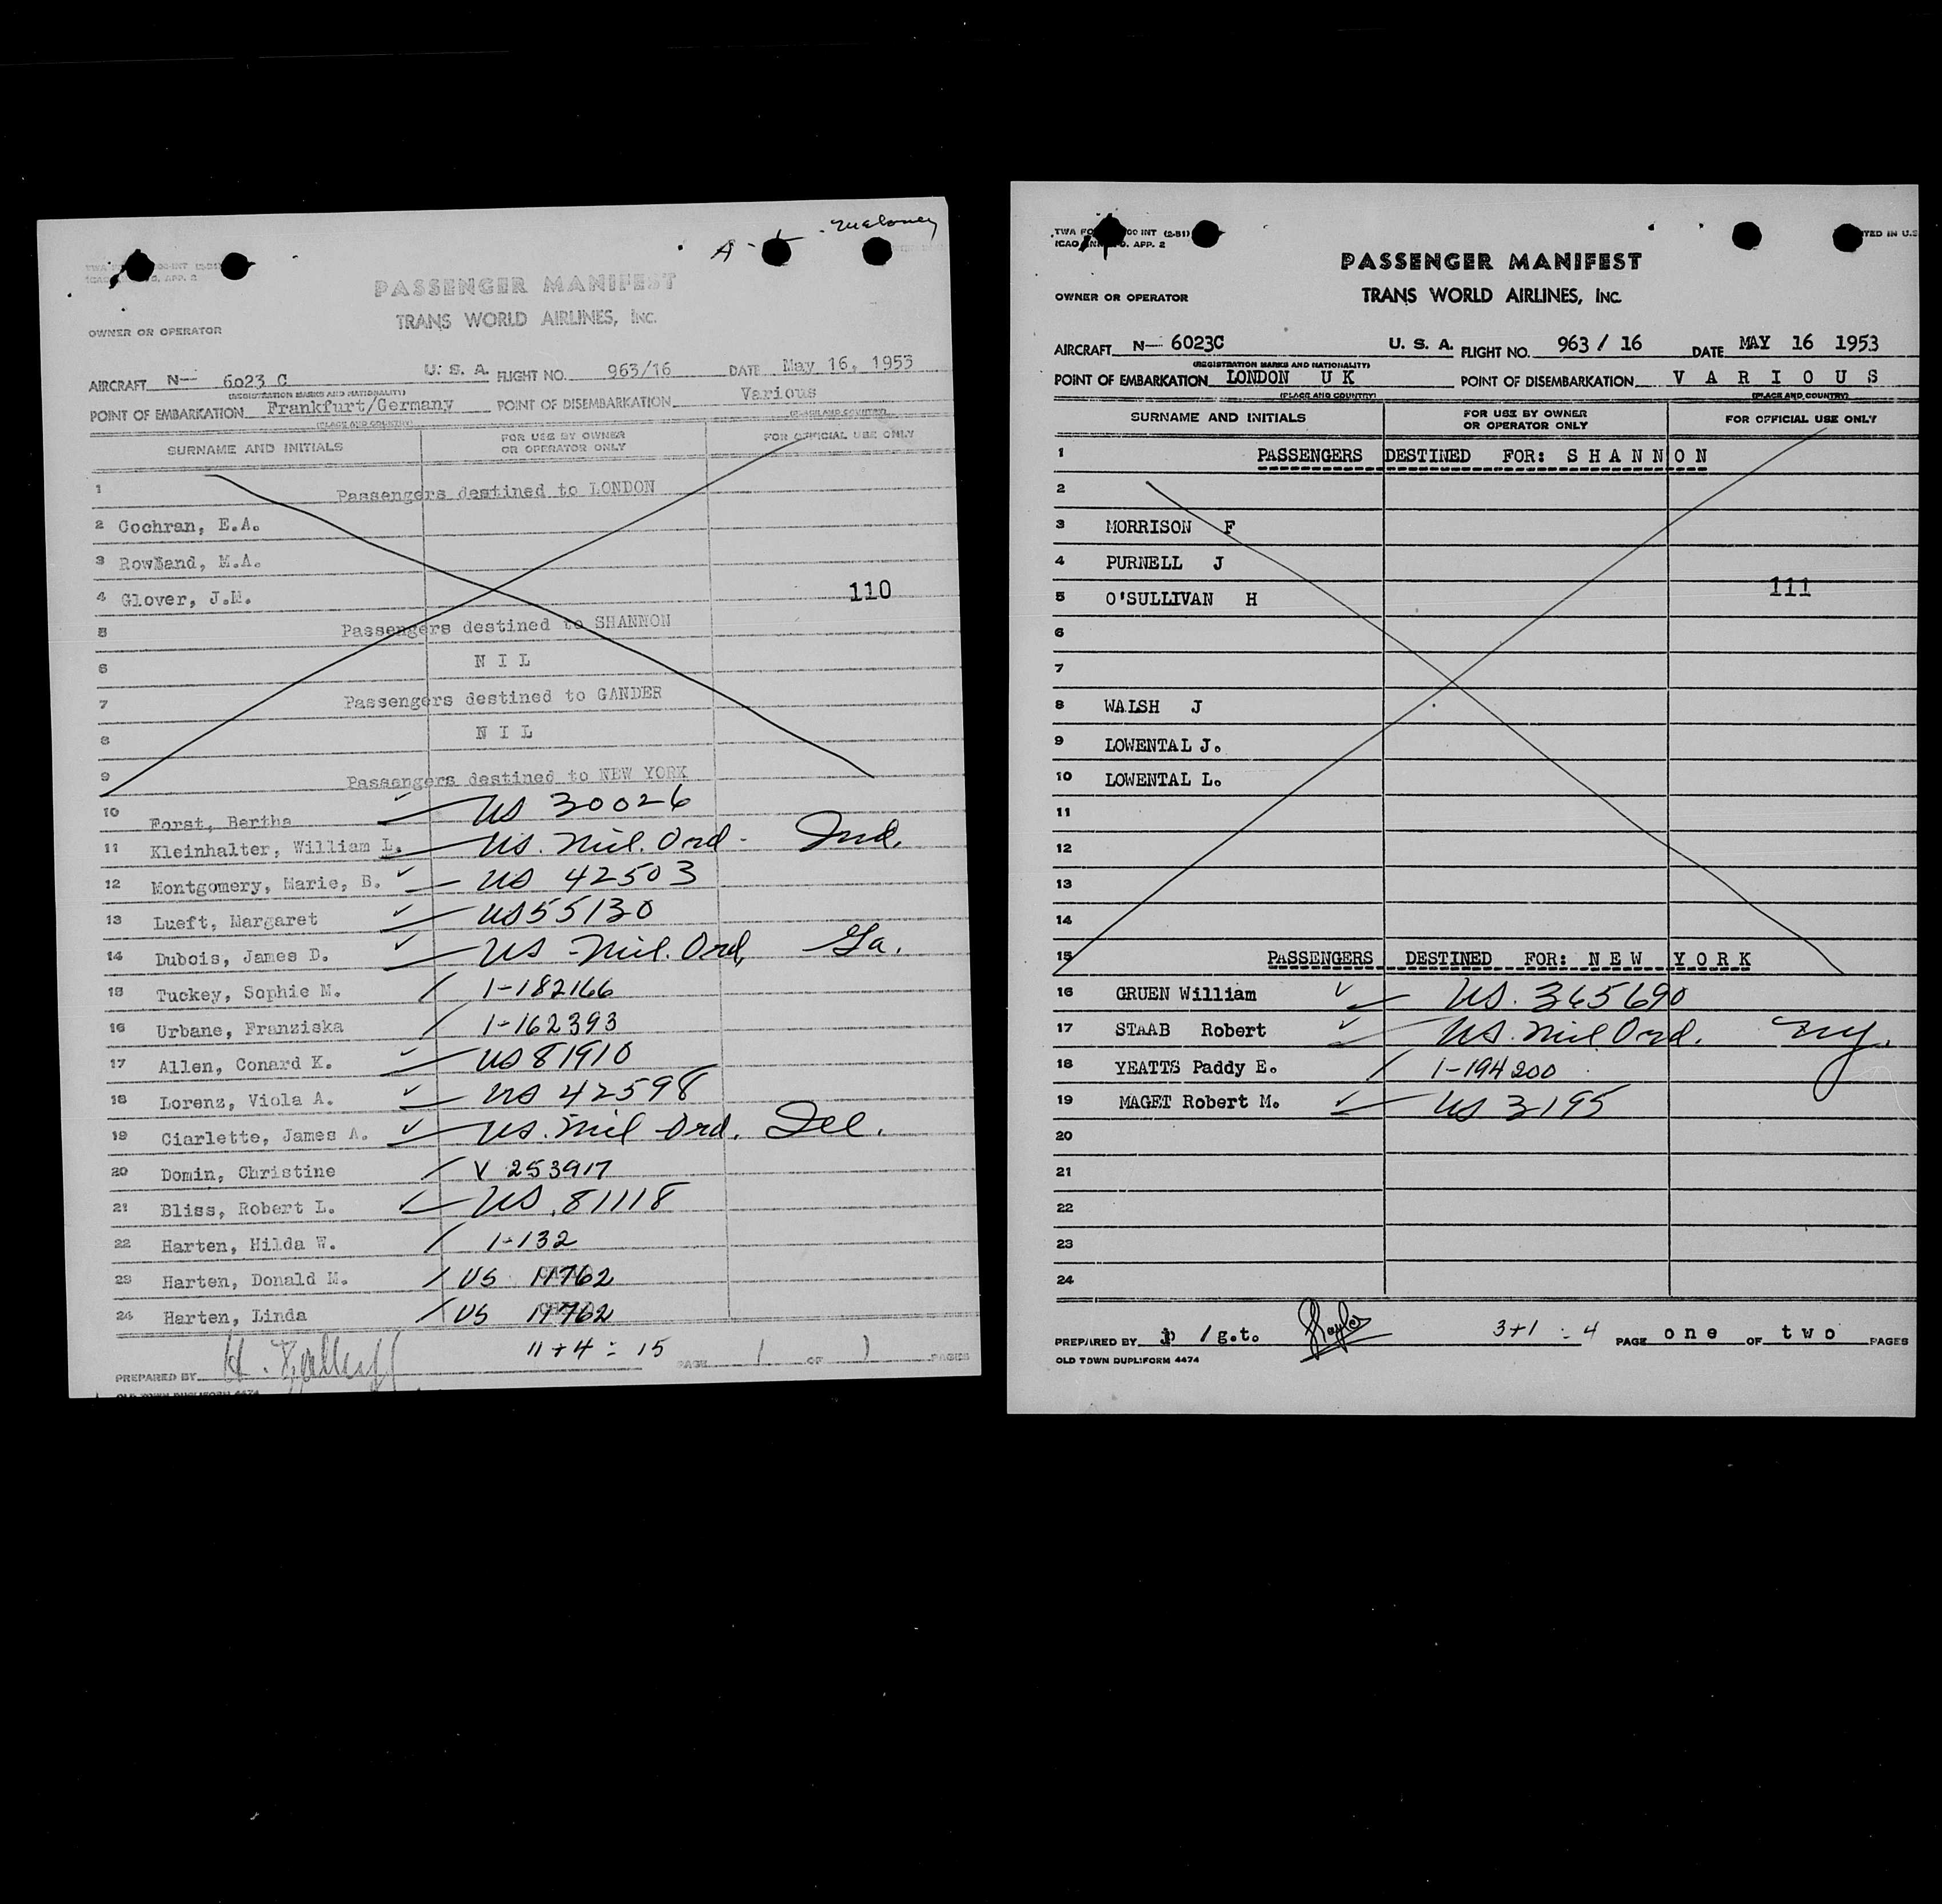 A - L - Maloney
PASSENGER MANIFEST
TRANS WORLD AIRLINES, INC.
OWNER OR OPERATOR
AIRCRAFT N— 6023 C U. S. A. FLIGHT NO. 963/16 DATE May 16, 1953
(REGISTRATION MARKS AND NATIONALITY)
POINT OF EMBARKATION Frankfurt/Germany POINT OF DISEMBARKATION Various
(PLACE AND COUNTRY) (PLACE AND COUNTRY)
SURNAME AND INITIALS FOR USE BY OWNER OR OPERATOR ONLY FOR OFFICIAL USE ONLY
1 Passengers destined to LONDON
2 Cochran, E.A.
3 Rowland, M.A.
4 Glover, J.M. 110
5 Passengers destined to SHANNON
6 N I L
7 Passengers destined to GANDER
8 N I L
9 Passengers destined to NEW YORK
10 Forst, Bertha ✓ US 30026
11 Kleinhalter, William L. US. Mil. Ord - Ind.
12 Montgomery, Marie, B. ✓ US 42503
13 Lueft, Margaret ✓ US 55130
14 Dubois, James D. ✓ US - Mil. Ord, Ga.
15 Tuckey, Sophie M. / 1-182166
16 Urbane, Franziska / 1-162393
17 Allen, Conard K. ✓ US 81910
18 Lorenz, Viola A. ✓ US 42598
19 Ciarlette, James A. ✓ US. Mil Ord. Del.
20 Domin, Christine / V 253917
21 Bliss, Robert L. ✓ US. 81118
22 Harten, Hilda W. / 1-132
23 Harten, Donald M. / US 11762
24 Harten, Linda / US 11762
11 + 4 = 15
PREPARED BY PAGE 1 OF 1 PAGES
OLD TOWN DUPLIFORM 4474
TWA 00 INT (2-51)
ICAO APP. 2
PASSENGER MANIFEST
TRANS WORLD AIRLINES, INC.
OWNER OR OPERATOR
AIRCRAFT N— 6023C U. S. A. FLIGHT NO. 963 / 16 DATE MAY 16 1953
(REGISTRATION MARKS AND NATIONALITY)
POINT OF EMBARKATION LONDON U K POINT OF DISEMBARKATION V A R I O U S
(PLACE AND COUNTRY) (PLACE AND COUNTRY)
SURNAME AND INITIALS FOR USE BY OWNER OR OPERATOR ONLY FOR OFFICIAL USE ONLY
1 PASSENGERS DESTINED FOR: S H A N N O N
2
3 MORRISON F
4 PURNELL J
5 O'SULLIVAN H 111
6
7
8 WALSH J
9 LOWENTAL J.
10 LOWENTAL L.
11
12
13
14
15 PASSENGERS DESTINED FOR: N E W Y O R K
16 GRUEN William ✓ US. 365690
17 STAAB Robert ✓ US. Mil Ord. NY.
18 YEATTS Paddy E. / 1-194200
19 MAGET Robert M. ✓ US 3195
20
21
22
23
24
3+1 = 4
PREPARED BY /g.to. PAGE one OF two PAGES
OLD TOWN DUPLIFORM 4474